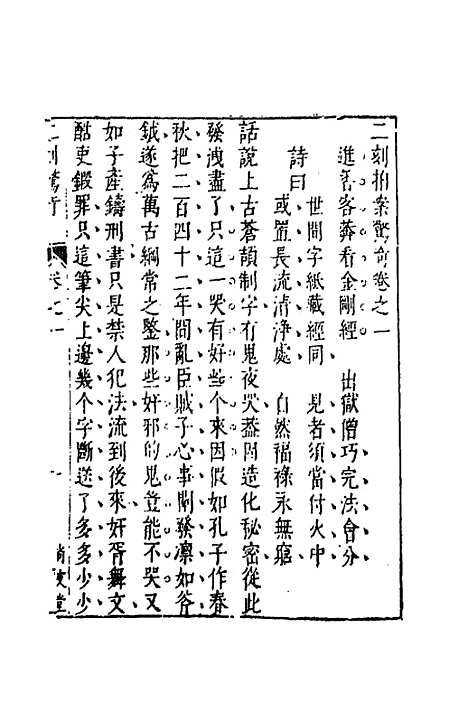 二刻拍案驚奇卷之一
進香客莽看金剛經　出獄僧巧完法會分
詩曰
世間字紙藏經同　見者須當付火中
或置長流清淨處　自然福祿永無窮
話說上古蒼頡制字有鬼夜哭蓋因造化秘密從此
發洩盡了只這一哭有好些个來因假如孔子作春
秋把二百四十二年間亂臣賊子心事闡發凛如斧
鉞遂爲萬古綱常之鑒那些奸邪的鬼豈能不哭又
如子產鑄刑書只是禁人犯法流到後來奸胥舞文
酷吏鍜罪只這筆尖上邊幾个字斷送了多多少少
二刻驚奇　卷之一　一　尚友堂